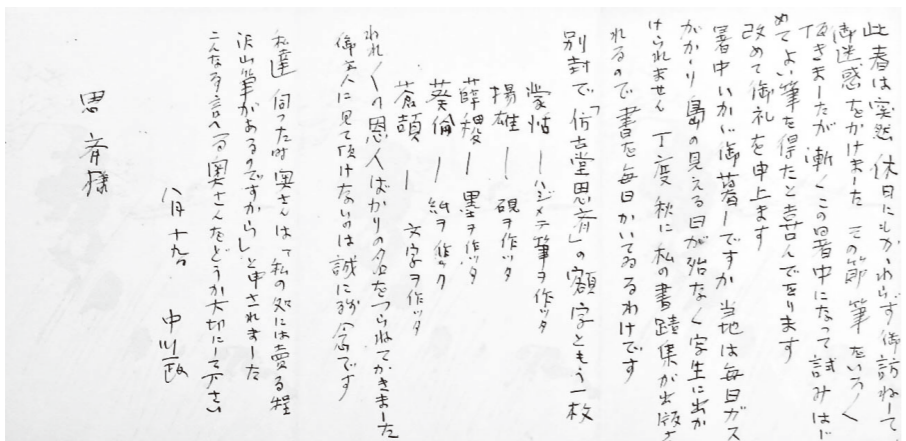 此春は突然 休日にもかゝわらず御訪ねして、
御迷惑をかけました その節 筆をいろ〱
頂きましたが漸くこの暑中になって試みはじ
めてよい筆を得たと喜んで至ります
改めて御礼を申上ます
暑中いかゞ御暮しですか 当地は毎日ガス
がかゝり島の見える日が殆なく字生に出か
けられません 丁度 秋に私の書蹟集が出版さ
れるので書を毎日かいてゐるわけです
別封で「仿古堂思斉」の額字ともう一枚
蒙恬 ー ハジメテ筆ヲ作ッタ
揚雄 ー 硯ヲ作ッタ
薛稷 ー 墨ヲ作ッタ
葵倫 ー 紙ヲ作ツク
蒼頡 ー 文字ヲ作ッタ
われ〱の恩人ばかりの名をつらねてかきました
御主人に見て頂けないのは誠に残念です
私達 伺った時 奥さんは「私の処には売る程
沢山筆があるのですから」と申されました
こんなる言へる奥さんをどうか大切にして下さい
八月十九日 中川一政
思斉様